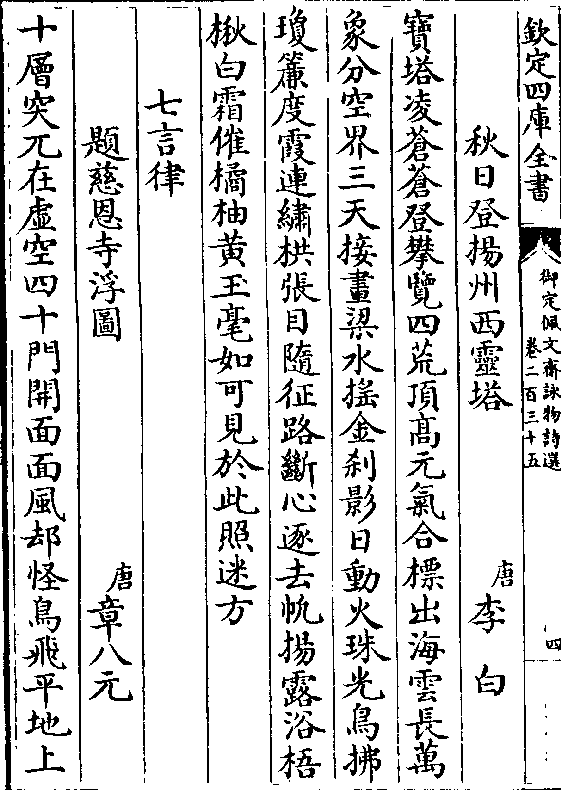 欽定四庫全書
御定佩文齋詠物詩選
卷二百三十五
四
秋日登揚州西靈塔
唐李白
寶塔凌蒼蒼登攀覽四荒頂髙元氣合標出海雲長萬
象分空界三天接畫梁水揺金刹影日動火珠光鳥拂
瓊簾度霞連繡栱張目隨征路斷心逐去帆揚露浴梧
楸白霜催橘柚黄玉毫如可見於此照迷方
七言律
題慈恩寺浮圖
唐章八元
十層突兀在虛空四十門開面面風却怪鳥飛平地上